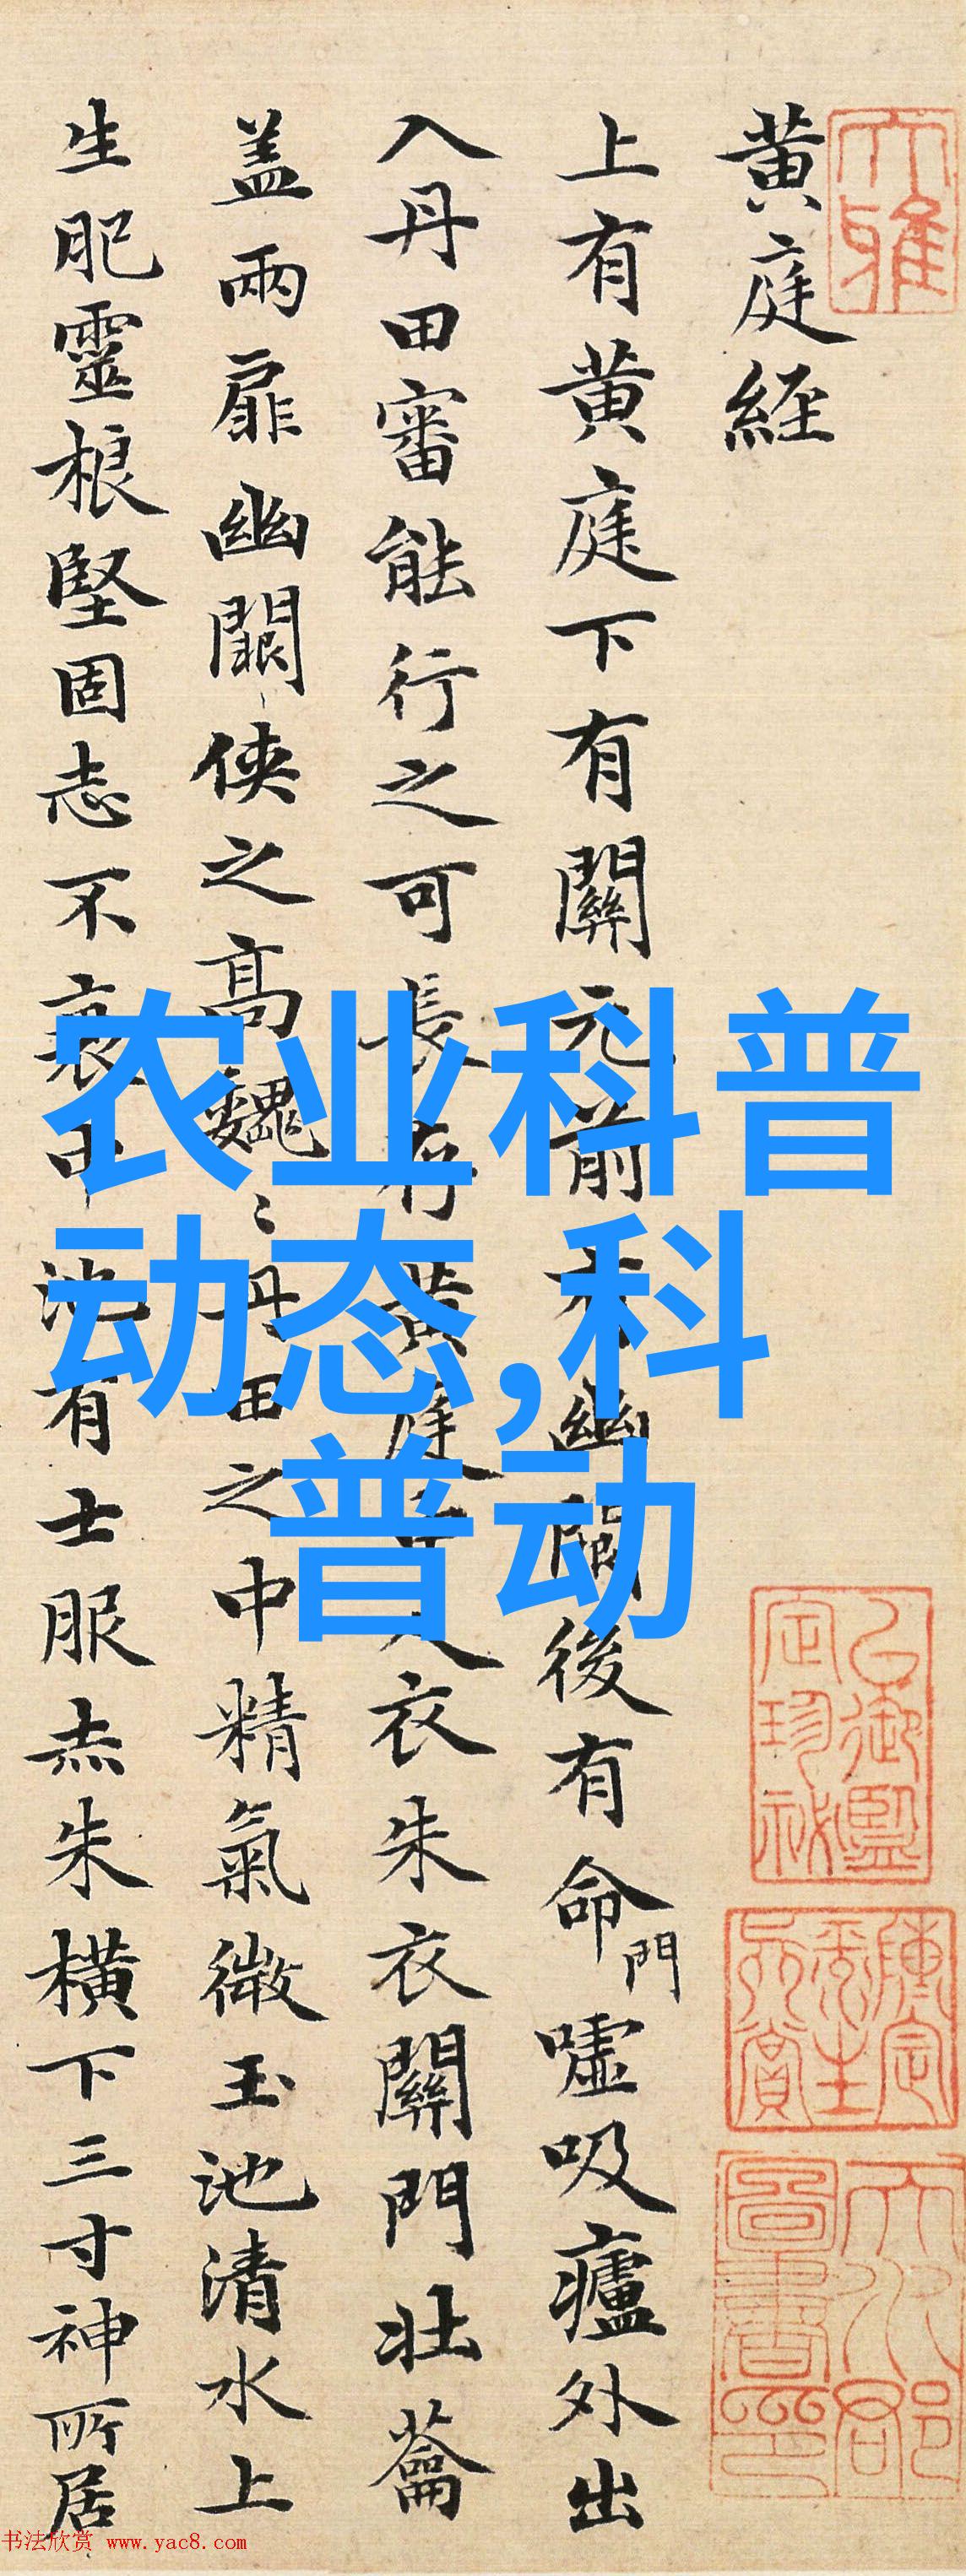 黄庭経
上有黄庭下有關元前有幽闕後有命門嘘吸廬外出
入丹田審能行之可長存黄庭中人衣朱衣關門壮蘥
盖兩扉幽闕侠之高魏〻丹田之中精氣微玉池清水上
生肥靈根堅固志不衰中池有士服赤朱横下三寸神所居
农业科普
动态,科
普动
书法欣赏 www.yac8.com